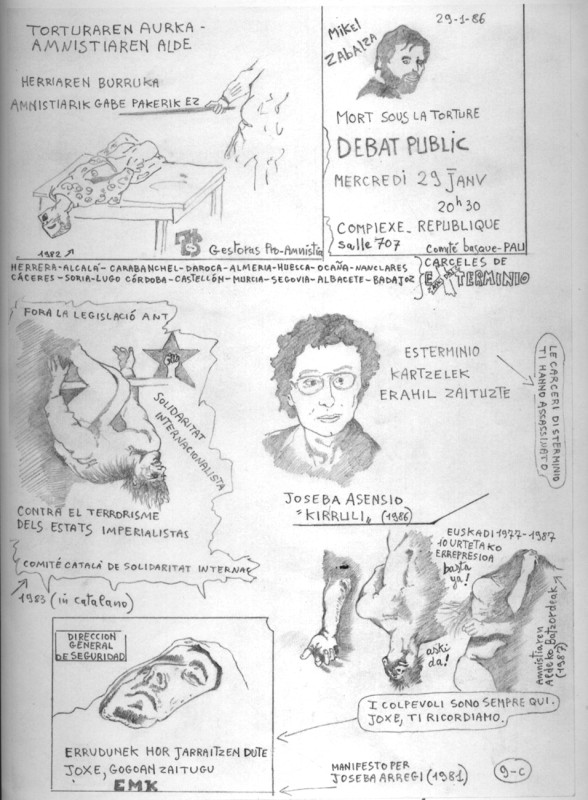 TORTURAREN AURKA -
AMNISTIAREN ALDE
HERRIAREN BURRUKA
AMNISTIARIK GABE PAKERIK EZ
1982
Gestoras Pro-Amnistia
29-1-86
MIKEL
ZABALZA
MORT SOUS LA TORTURE
DEBAT PUBLIC
MERCREDI 29 JANV
20h30
COMPLEXE REPUBLIQUE
Salle 707
Comité basque-PAU
HERRERA-ALCALÁ-CARABANCHEL-DAROCA-ALMERIA-HUESCA-OCAÑA-NANCLARES
CÁCERES-SORIA-LUGO CÓRDOBA-CASTELLÓN-MURCIA-SEGOVIA-ALBACETE-BADAJOZ
CARCELES DE
EXTERMINIO
FORA LA LEGISLACIÓ ANT
SOLIDARITAT
INTERNACIONALISTA
CONTRA EL TERRORISME
DELS ESTATS IMPERIALISTAS
COMITÉ CATALÀ DE SOLIDARITAT INTERNAC
1983 (in catalano)
ESTERMINIO
KARTZELEK
ERAHIL ZAITUZTE
LE CARCERI DI STERMINIO
TI HANNO ASSASSINATO
JOSEBA ASENSIO
"KIRRULI" (1986)
EUSKADI 1977-1987
10 URTETAKO
ERREPRESIOA
basta
ya!
aski
da!
Amnistiaren
Aldeko Batzordeak
(1987)
DIRECCION
GENERAL
DE SEGURIDAD
ERRUDUNEK HOR JARRAITZEN DUTE
JOXE, GOGOAN ZAITUGU
EMK
I COLPEVOLI SONO SEMPRE QUI.
JOXE, TI RICORDIAMO.
MANIFESTO PER
JOSEBA ARREGI (1981)
9-C